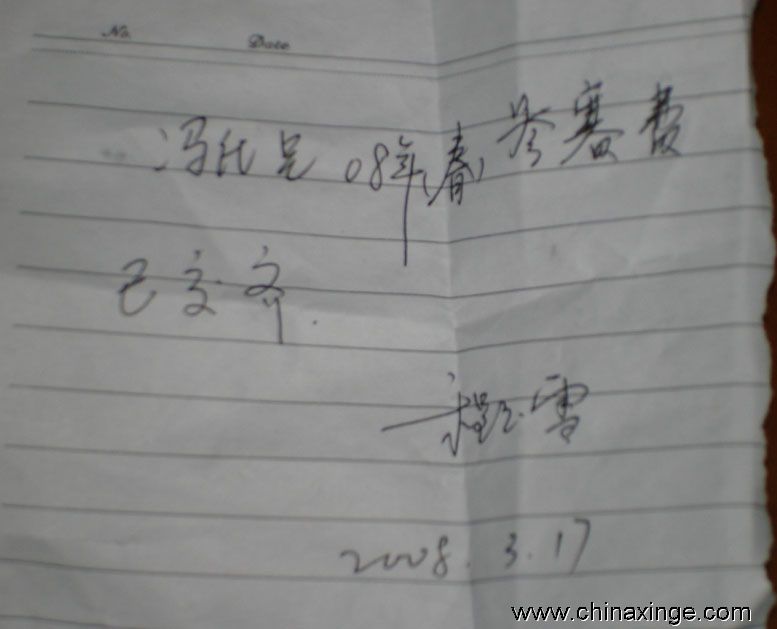 No.
Date
冯代足 08年(春)参赛费
已交齐.
程雪
2008.3.17
www.chinaxinge.com